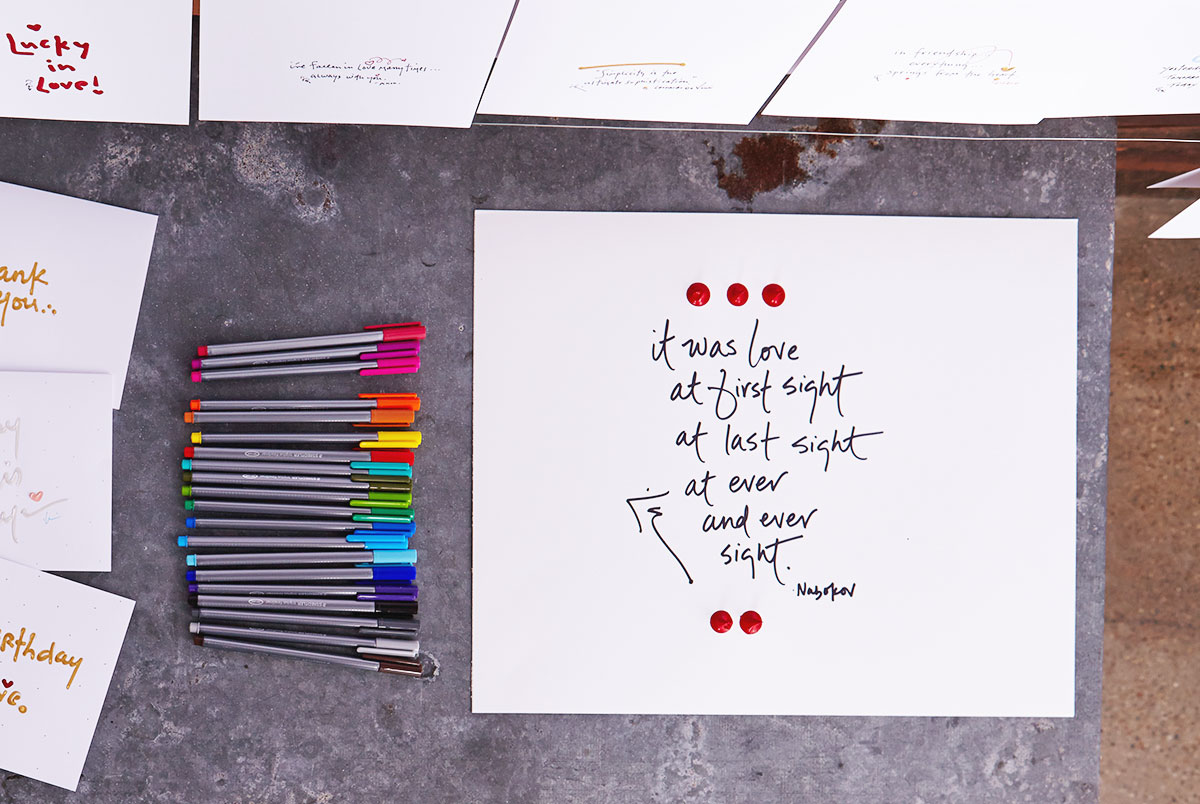 Lucky
in
Love!
i've fallen in love many times...
always with you..
"Simplicity is the
ultimate sophistication"
in friendship
everything
springs from the heart
ank
you...
it was love
at first sight
at last sight
at ever
and ever
sight.
Nabokov
irthday